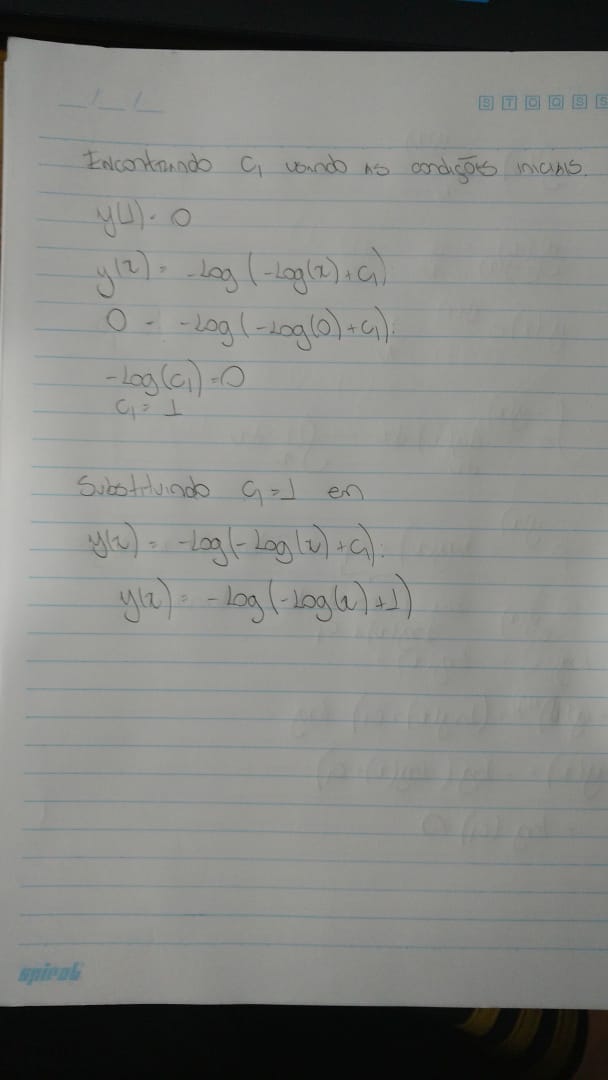 S T Q Q S S
Encontrando C₁ usando as condições iniciais.
y(1) = 0
y(x) = -Log(-Log(x)+C₁)
0 = -Log(-Log(0)+C₁):
-Log(C₁)=0
C₁ = 1
Substituindo C₁=1 en
y(x) = -Log(-Log(x)+C₁):
y(x) = -Log(-Log(x)+1)
spiral